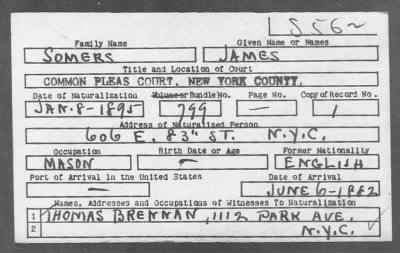 L S562
Family Name Given Name or Names
SOMERS JAMES
Title and Location of Court
COMMON PLEAS COURT, NEW YORK COUNTY.
Date of Naturalization Volume or Bundle No. Page No. Copy of Record No.
JAN. 8-1895 799 — 1
Address of Naturalized Person
606 E. 83" ST. N.Y.C.
Occupation Birth Date or Age Former Nationality
MASON — ENGLISH
Port of Arrival in the United States Date of Arrival
— JUNE 6-1882
Names, Addresses and Occupations of Witnesses To Naturalization
1 THOMAS BRENNAN, 1112 PARK AVE.
2 N.Y.C.